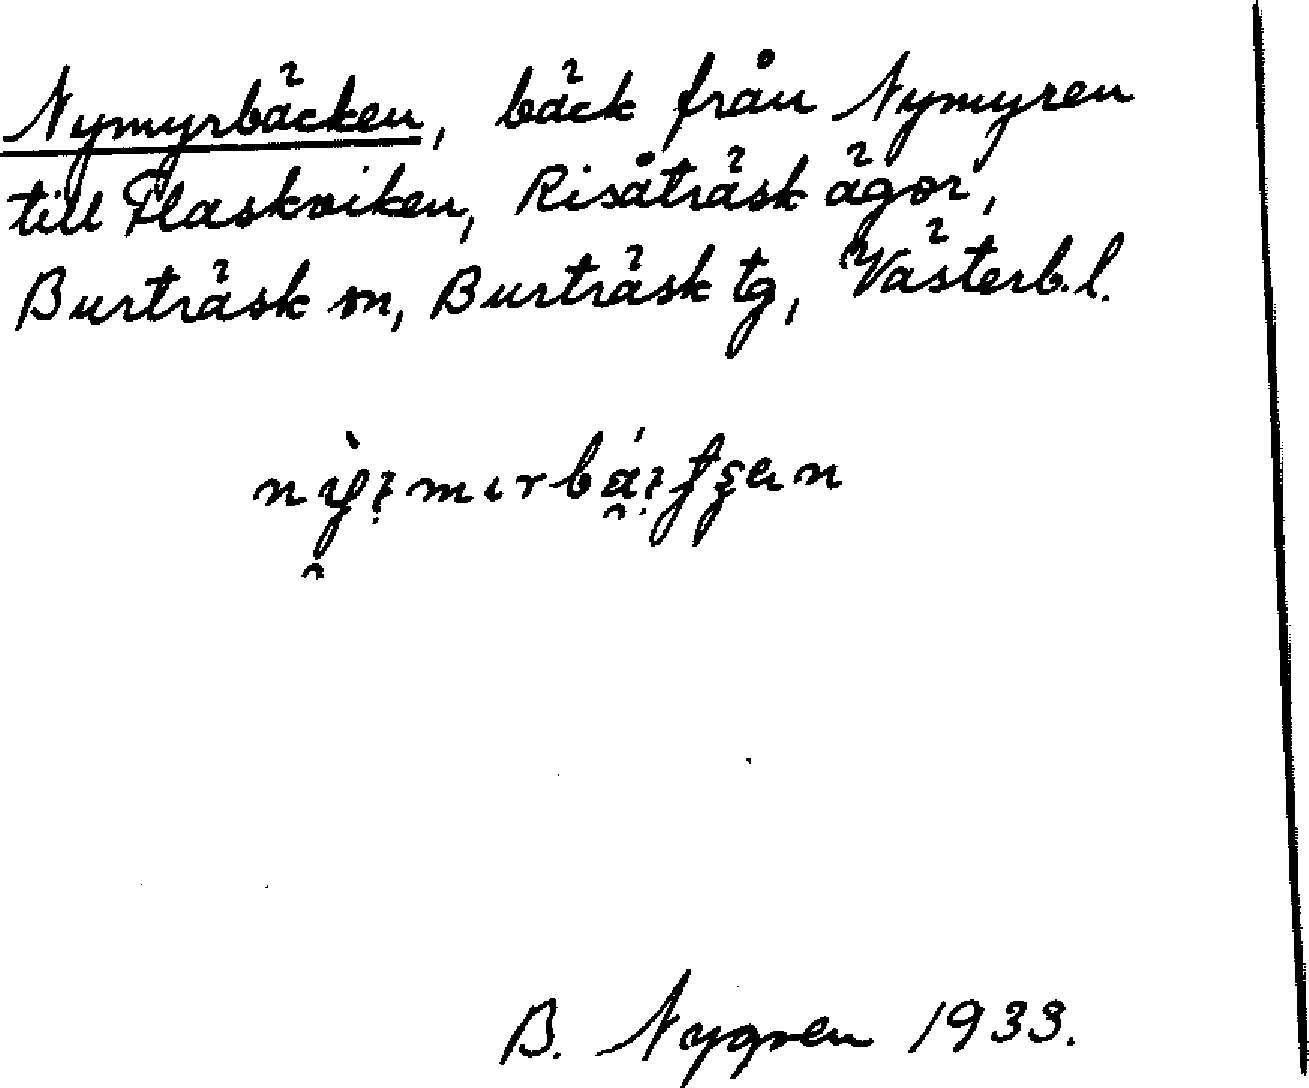 Nymyrbäcken, bäck från Nymyren
till Flaskviken, Risåträsk ägor,
Burträsk sn, Burträsk tg, Västerb. l.
B. Nygren 1933.